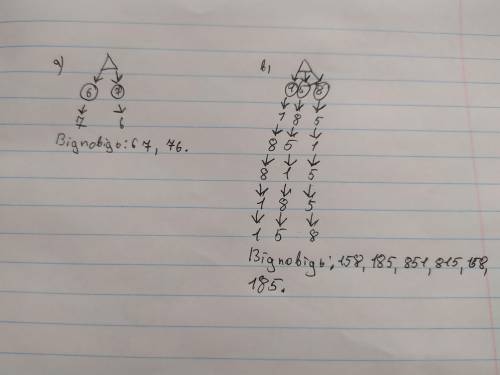 а)
6 7
7 6
Відповідь: 67, 76.
в)
1 5 8
1 8 5
8 5 1
8 1 5
1 8 5
1 5 8
Відповідь: 158, 185, 851, 815, 158,
185.